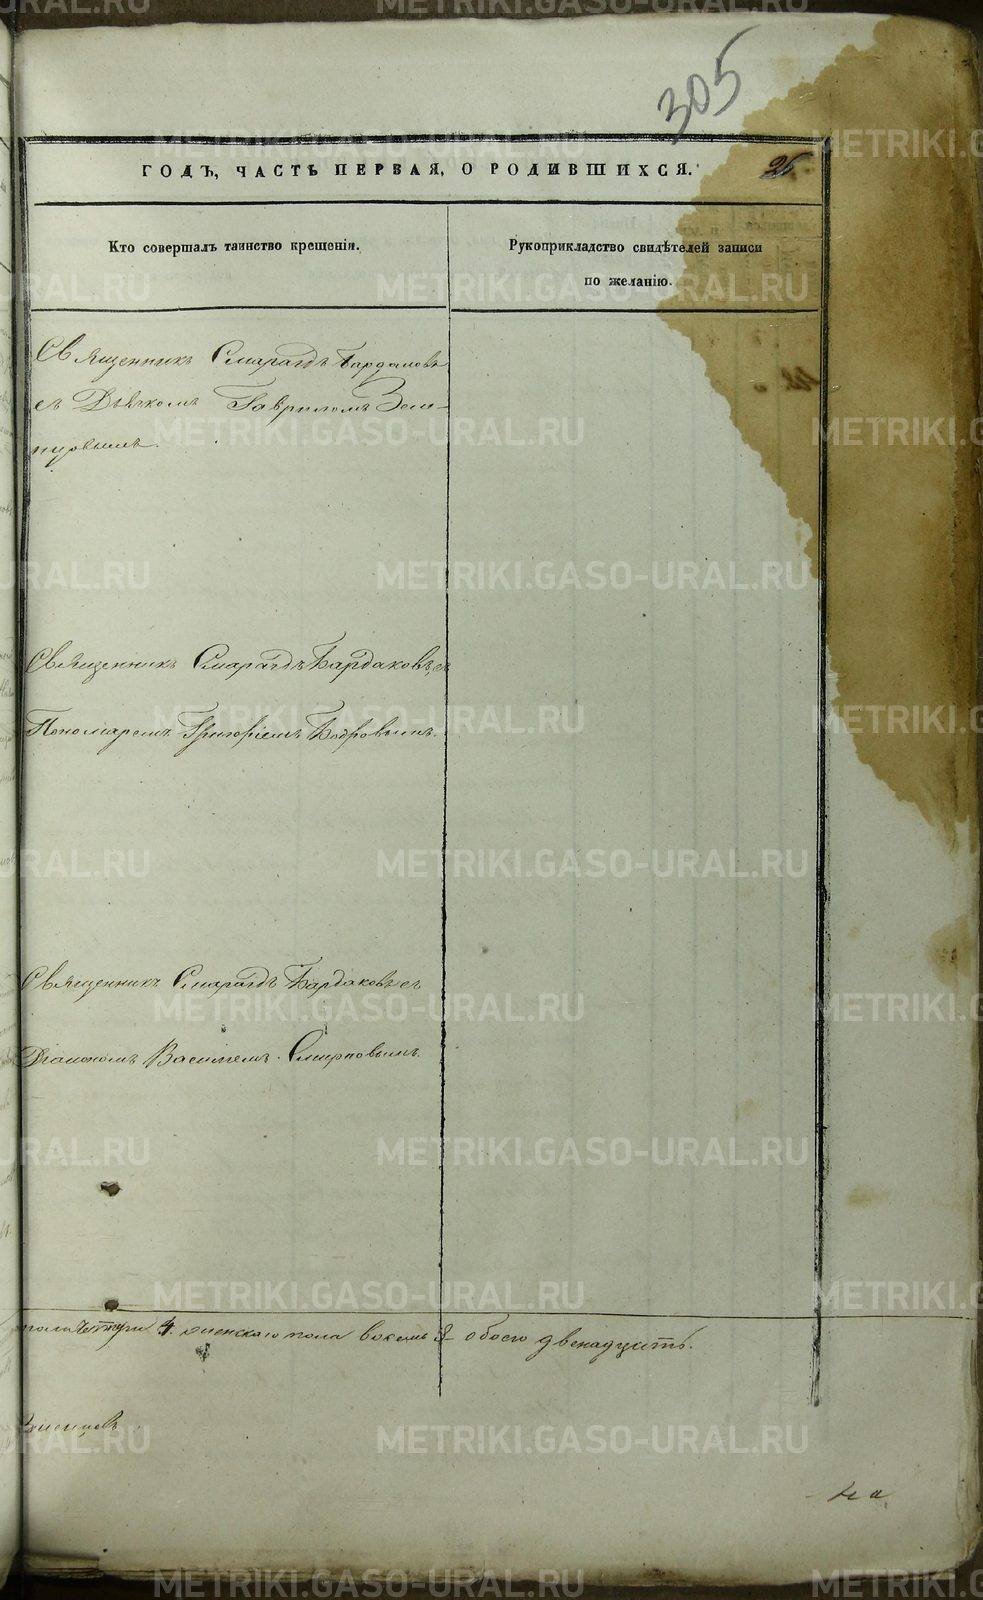 305
ГОДЪ, ЧАСТЬ ПЕРВАЯ, О РОДИВШИХСЯ.
26
Кто совершалъ таинство крещенія.
Рукоприкладство свидѣтелей записи
по желанію.
Священникъ Смарагдъ Бардаковъ
съ Дьячкомъ Гавриломъ
Священникъ Смарагдъ Бардаковъ, съ
Пономаремъ Григоріемъ Бобровымъ.
Священникъ Смарагдъ Бардаковъ съ
Діакономъ Василіемъ Смирновымъ.
пола четыри 4. женскаго пола восемь 8 обоего двенадцать.
на
METRIKI.GASO-URAL.RU